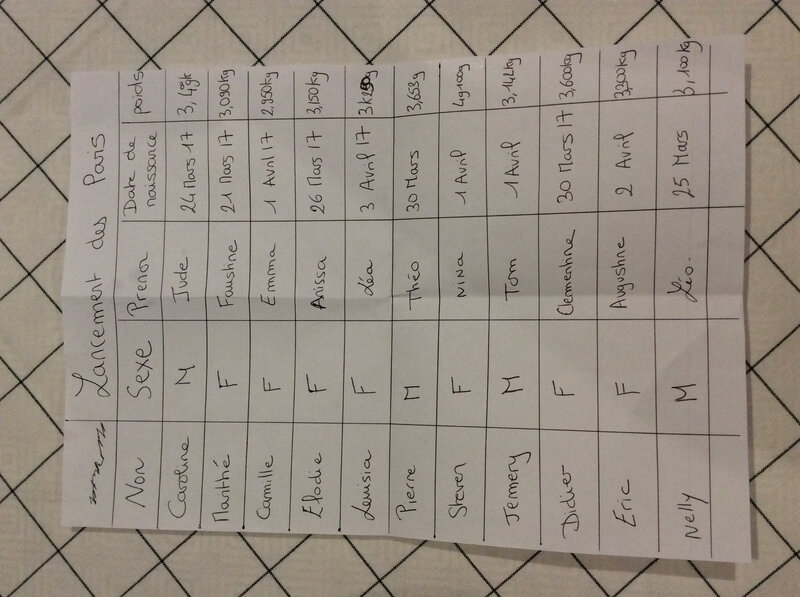 Lancement des Paris
Non Sexe Prenon Date de naissance poids
Caroline M Jude 24 Mars 17
Marthé F Faustine 21 Mars 17 3,090kg
Camille F Emma 1 Avril 17 2,950kg
Elodie F Anissa 26 Mars 17 3,150kg
Louisia F Léa 3 Avril 17
Pierre M Théo 30 Mars 3,653g
Steven F Nina 1 Avril 4g100g
Jemmery M Tom 1 Avril 3,142kg
Didier F Clementine 30 Mars 17 3,600kg
Eric F Augustine 2 Avril
Nelly M Léo. 25 Mars 3,100kg